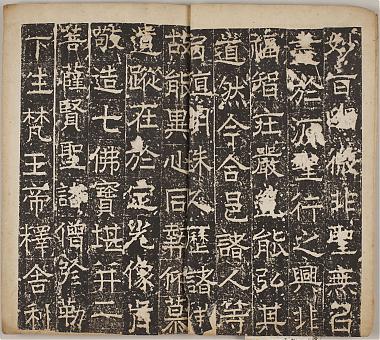 妙幽微非聖無
盡於源至行之興非
福智莊嚴豈能弘其
道然今合邑諸人等
明珠久歷諸
故能異心同契仰慕
遺蹤在於定光像背
敬造七佛寶堪并二
菩薩賢聖諸僧弥勒
下生梵王帝釋舍利